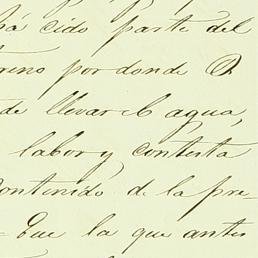 há cido parte del
reno por donde
de llevar el agua,
labor y contesta
Contenido de la pre-
- Que la que antes